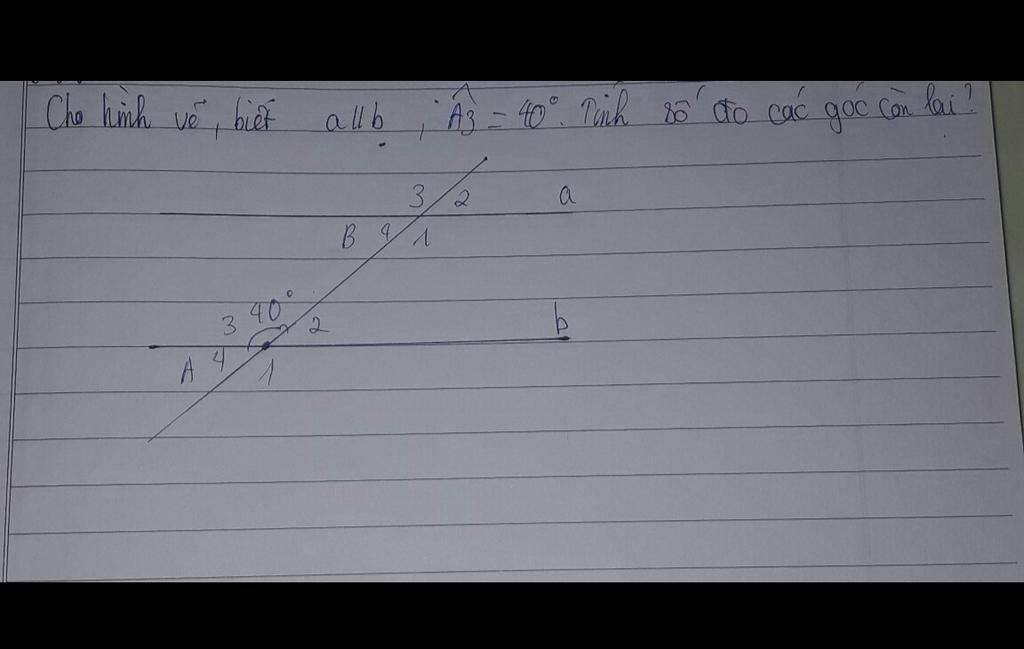 Cho hình vẽ, biết a // b ; Â3 = 40°. Tính số đo các góc còn lại?
3 2 a
B 4 1
3 40° 2 b
A 4 1